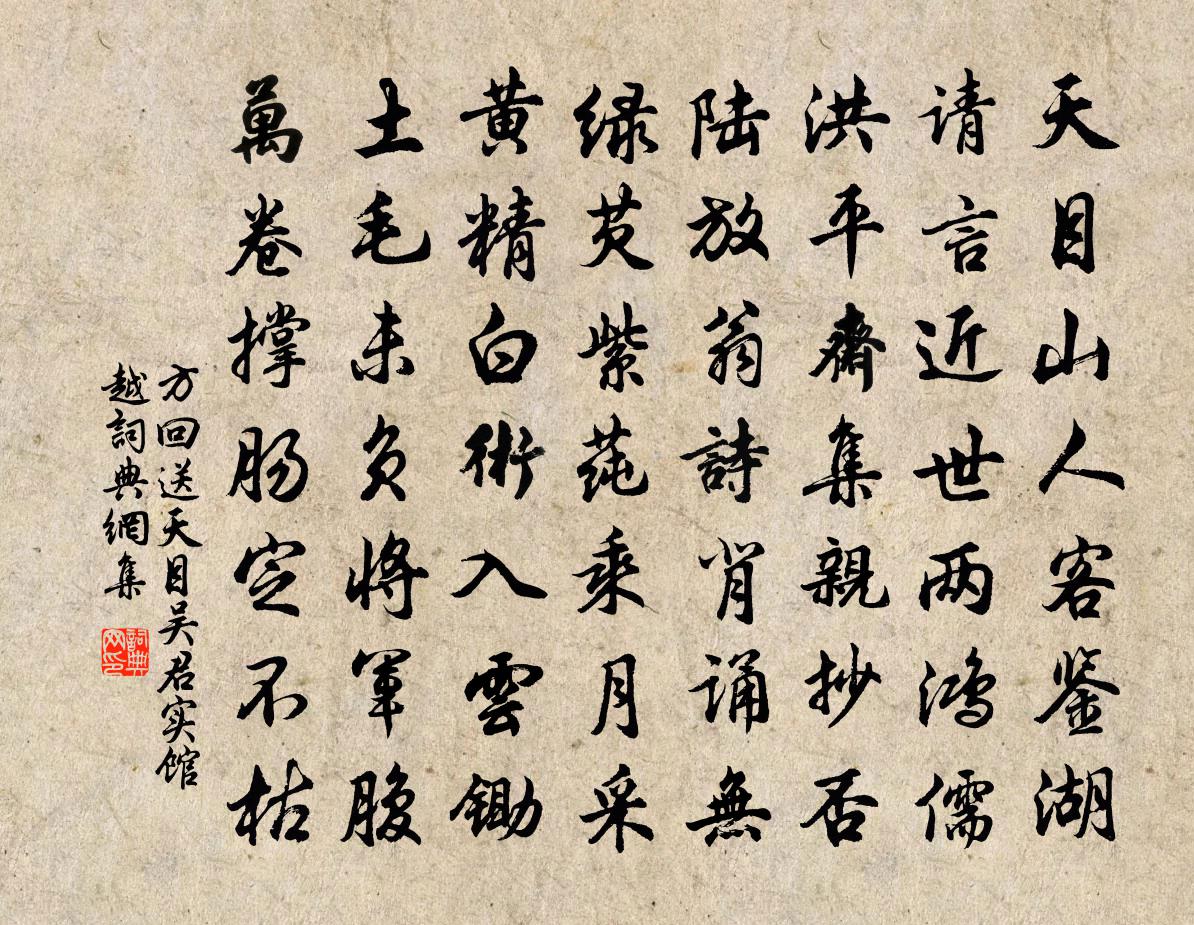 天目山人客鉴湖
请言近世两鸿儒
洪平齋集親抄否
陆放翁詩背诵無
绿芡紫莼乘月采
黄精白術入雲锄
土毛未负将軍腹
萬卷撑肠定不枯
方回送天目吴君实馆
越詞典網集
詞典网印